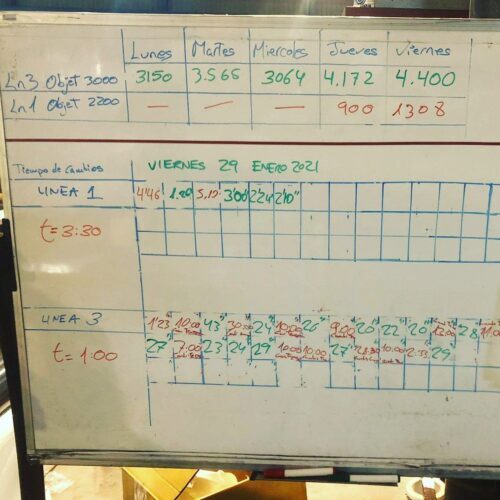 Lunes Martes Miercoles Jueves Viernes
Ln3 Objet 3000 3150 3.565 3064 4.172 4.400
Ln1 Objet 2200 — — — 900 1308
Tiempo de Cambios VIERNES 29 ENERO 2021
LINEA 1 4'46" 1.29 5,12" 3'00" 2'24" 2'10"
t=3:30
LINEA 3 1'23 10:00 43" 30:00 24" 10:00 26" 9:00 20" 22" 20" 12:00 28 11:00
t=1:00 27" 7:00 23" 24" 29" 10:00 10:00 27" 28:30 10:00 2:33 29"